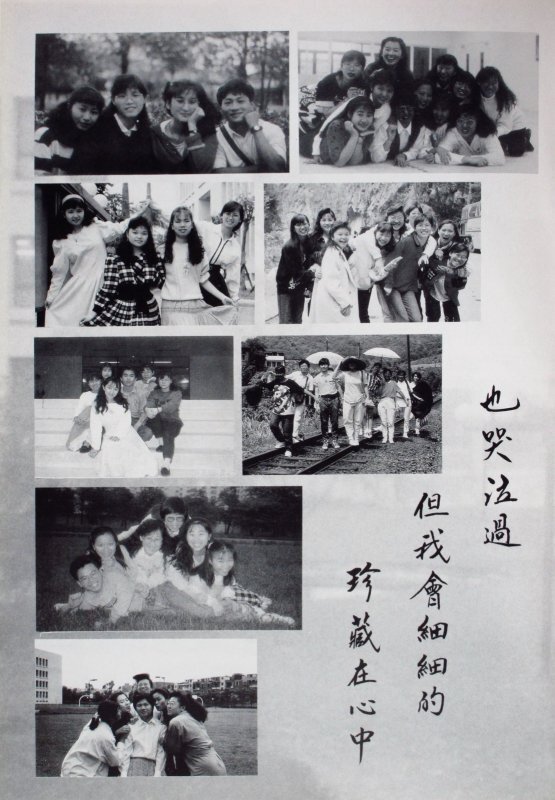 也哭泣過
但我會細細的
珍藏在心中